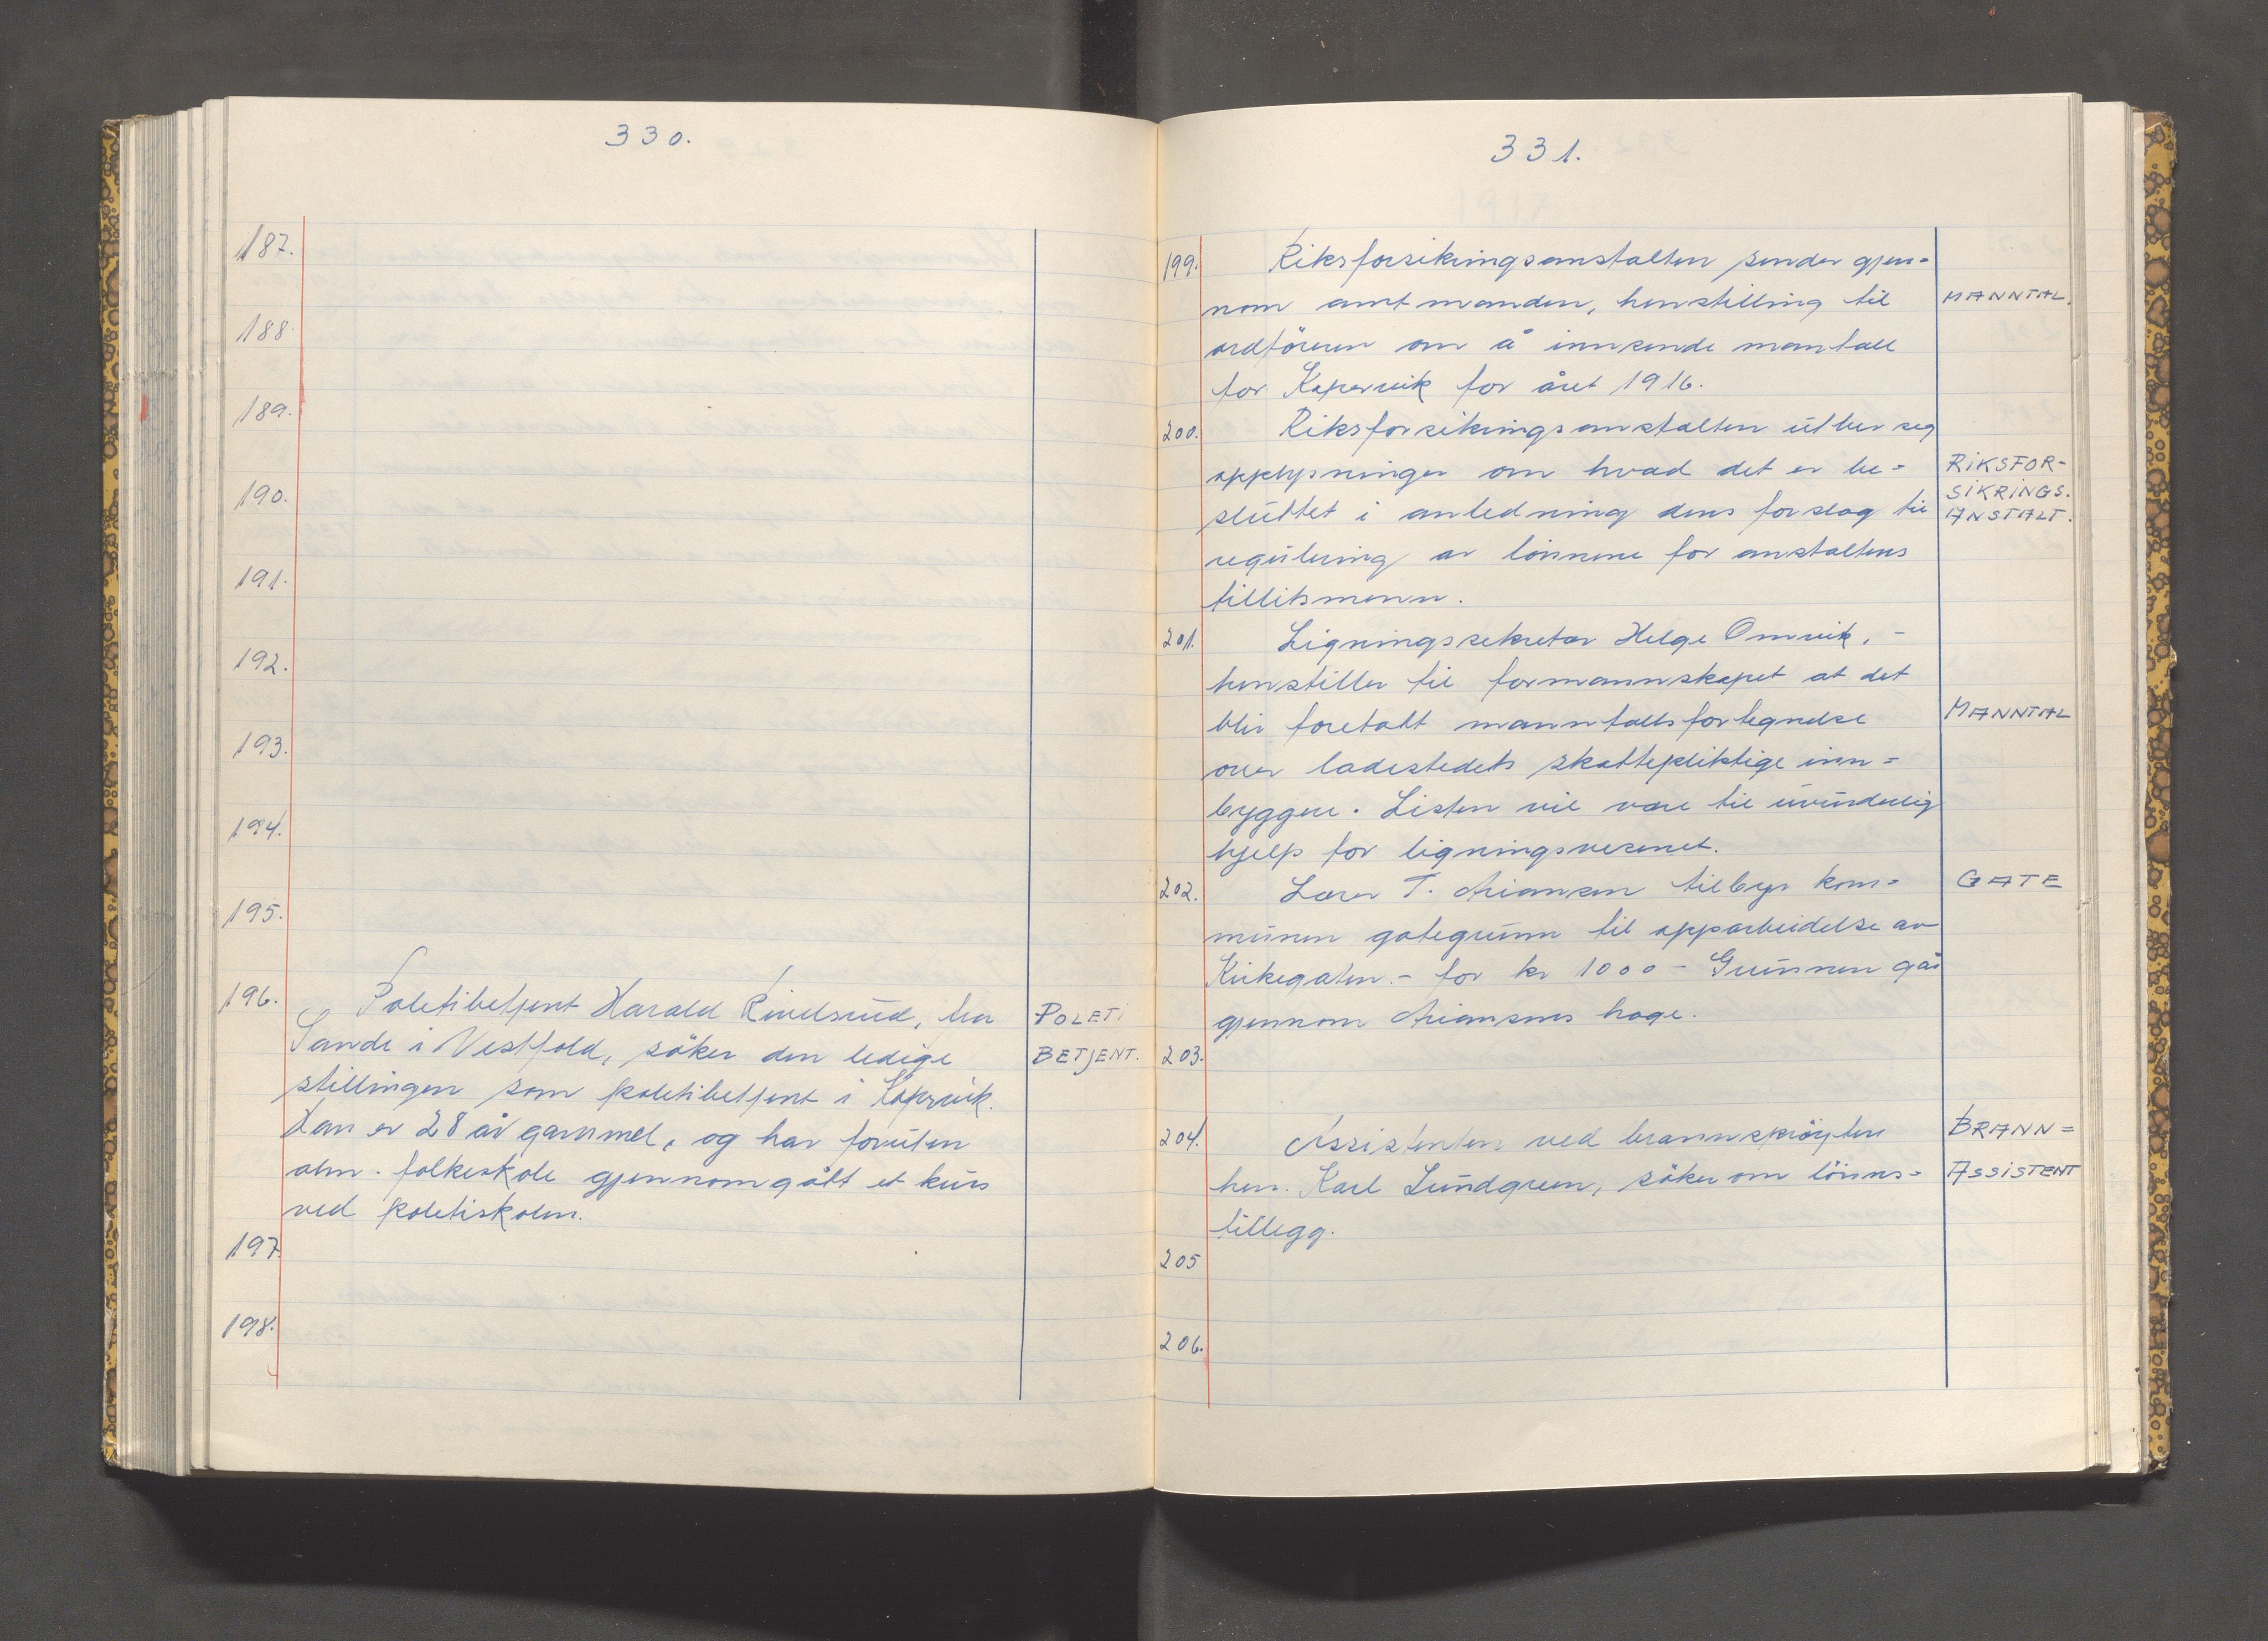 330.
187.
188.
189.
190.
191.
192.
193.
194.
195.
196. Poletibetjent Harald Rindsrud, fra POLETI
Sande i Vestfold, söker den ledige BETJENT.
stillingen som poletibetjent i Kopervik.
Han er 28 år gammel, og har foruten
alm. folkeskole gjennomgått et kurs
ved poletiskolen.
197.
198.
331.
199. Riksforsikringsanstalten sender gjen=
nom amtmanden, henstilling til MANNTAL.
ordföreren om å innsende mantall
for Kopervik for året 1916.
200. Riksforsikringsanstalten utber seg
opplysninger om hvad det er be= RIKSFOR-
SIKRINGS.
sluttet i anledning dens forslag til ANSTALT.
regulering av lönnene for anstaltens
tillitsmenn.
201. Ligningssekretær Helge Omvik, -
henstiller til formannskapet at det
blir foretatt manntallsfortegnelse MANNTAL
over ladestedets skattepliktige inn=
byggere. Listen vil være til uvurderlig
hjelp for ligningsvesenet.
202. Lærer T. Ariansen tilbyr kom= GATE
munen gategrunn til opparbeidelse av
Kirkegaten.- for kr 1000 - Grunnen går
gjennom Ariansens hage.
203.
204. Assistenten ved brannspröyten BRANN=
herr. Karl Lundgren, söker om lönns= ASSISTENT
tillegg.
205
206.